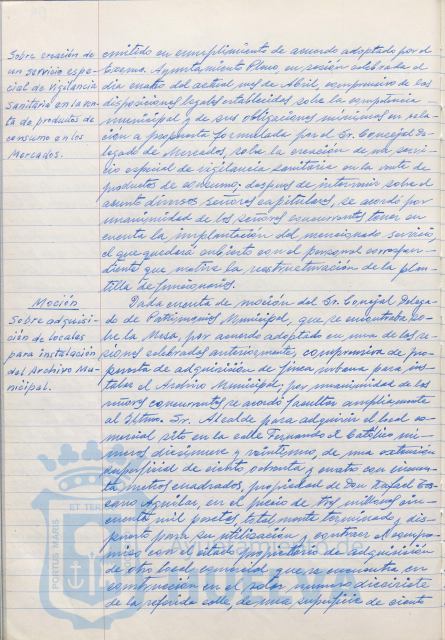 Sobre creación de
un servicio espe-
cial de vigilancia
sanitaria en la ven-
ta de productos de
consumo en los
Mercados.
emitido en cumplimiento de acuerdo adoptado por el
Excmo. Ayuntamiento Pleno, en sesión celebrada el
dia cuatro del actual mes de Abril, comprensivo de las
disposiciones legales establecidas sobre la competencia
municipal y de sus obligaciones mínimas en rela-
ción a propuesta formulada por el Sr. Concejal De-
legado de Mercados, sobre la creación de un servi-
cio especial de vigilancia sanitaria en la venta de
productos de consumo; despues de intervenir sobre el
asunto diversos señores capitulares, se acordó por
unanimidad de los señores concurrentes tener en
cuenta la implantación del mencionado servicio,
el que quedará cubierto con el personal correspon-
diente que motive la reestructuración de la plan-
tilla de funcionarios.
Moción
Sobre adquisi-
ción de locales
para instalación
del Archivo Mu-
nicipal.
Dada cuenta de moción del Sr. Concejal Delega-
do de Patrimonio Municipal, que se encontraba so-
bre la Mesa, por acuerdo adoptado en una de las se-
siones celebradas anteriormente, comprensiva de pro-
puesta de adquisición de finca urbana para ins-
talar el Archivo Municipal, por unanimidad de los
señores concurrentes se acordó facultar ampliamente
al Iltmo. Sr. Alcalde para adquirir el local co-
mercial sito en la calle Fernando el Católico nú-
meros diecinueve y veintiuno, de una extensión
superficial de ciento ochenta y cuatro con cincuen-
ta metros cuadrados, propiedad de Don Rafael
Aguilar, en el precio de tres millones cin-
cuenta mil pesetas, totalmente terminado y dis-
puesto para su utilización, y contraer el compro-
miso con el citado propietario de adquisición
de otro local comercial que se encuentra en
construcción en el solar numero diecisiete
de la referida calle, de una superficie de ciento
ET TERRA
PORTUS MARIS